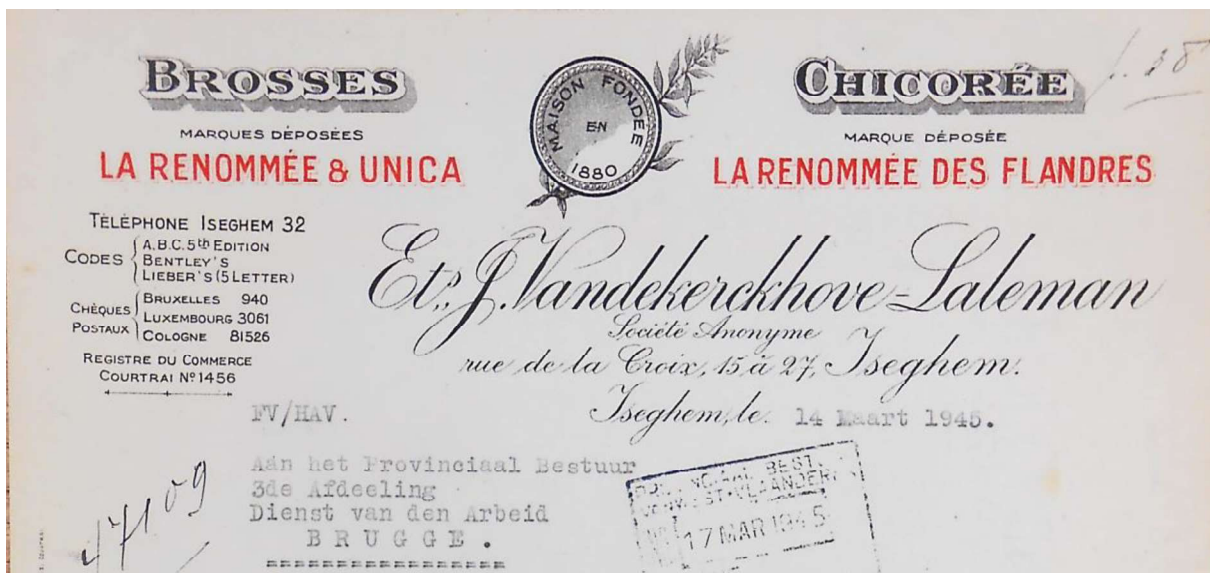 BROSSES
MARQUES DÉPOSÉES
LA RENOMMÉE & UNICA
MAISON FONDÉE
EN
1880
CHICORÉE
MARQUE DÉPOSÉE
LA RENOMMÉE DES FLANDRES
TÉLÉPHONE ISEGHEM 32
CODES
A.B.C. 5th EDITION
BENTLEY'S
LIEBER'S (5 LETTER)
CHÈQUES POSTAUX
BRUXELLES 940
LUXEMBOURG 3061
COLOGNE 81526
REGISTRE DU COMMERCE
COURTRAI Nº 1456
Ets. J. Vandekerckhove-Laleman
Société Anonyme
rue de la Croix, 15 à 27, Iseghem.
FV/HAV.
Iseghem, le. 14 Maart 1945.
Aan het Provinciaal Bestuur
3de Afdeeling
Dienst van den Arbeid
BRUGGE.
47109
BEST.
WEST-VLAANDEREN
17 MAR 1945